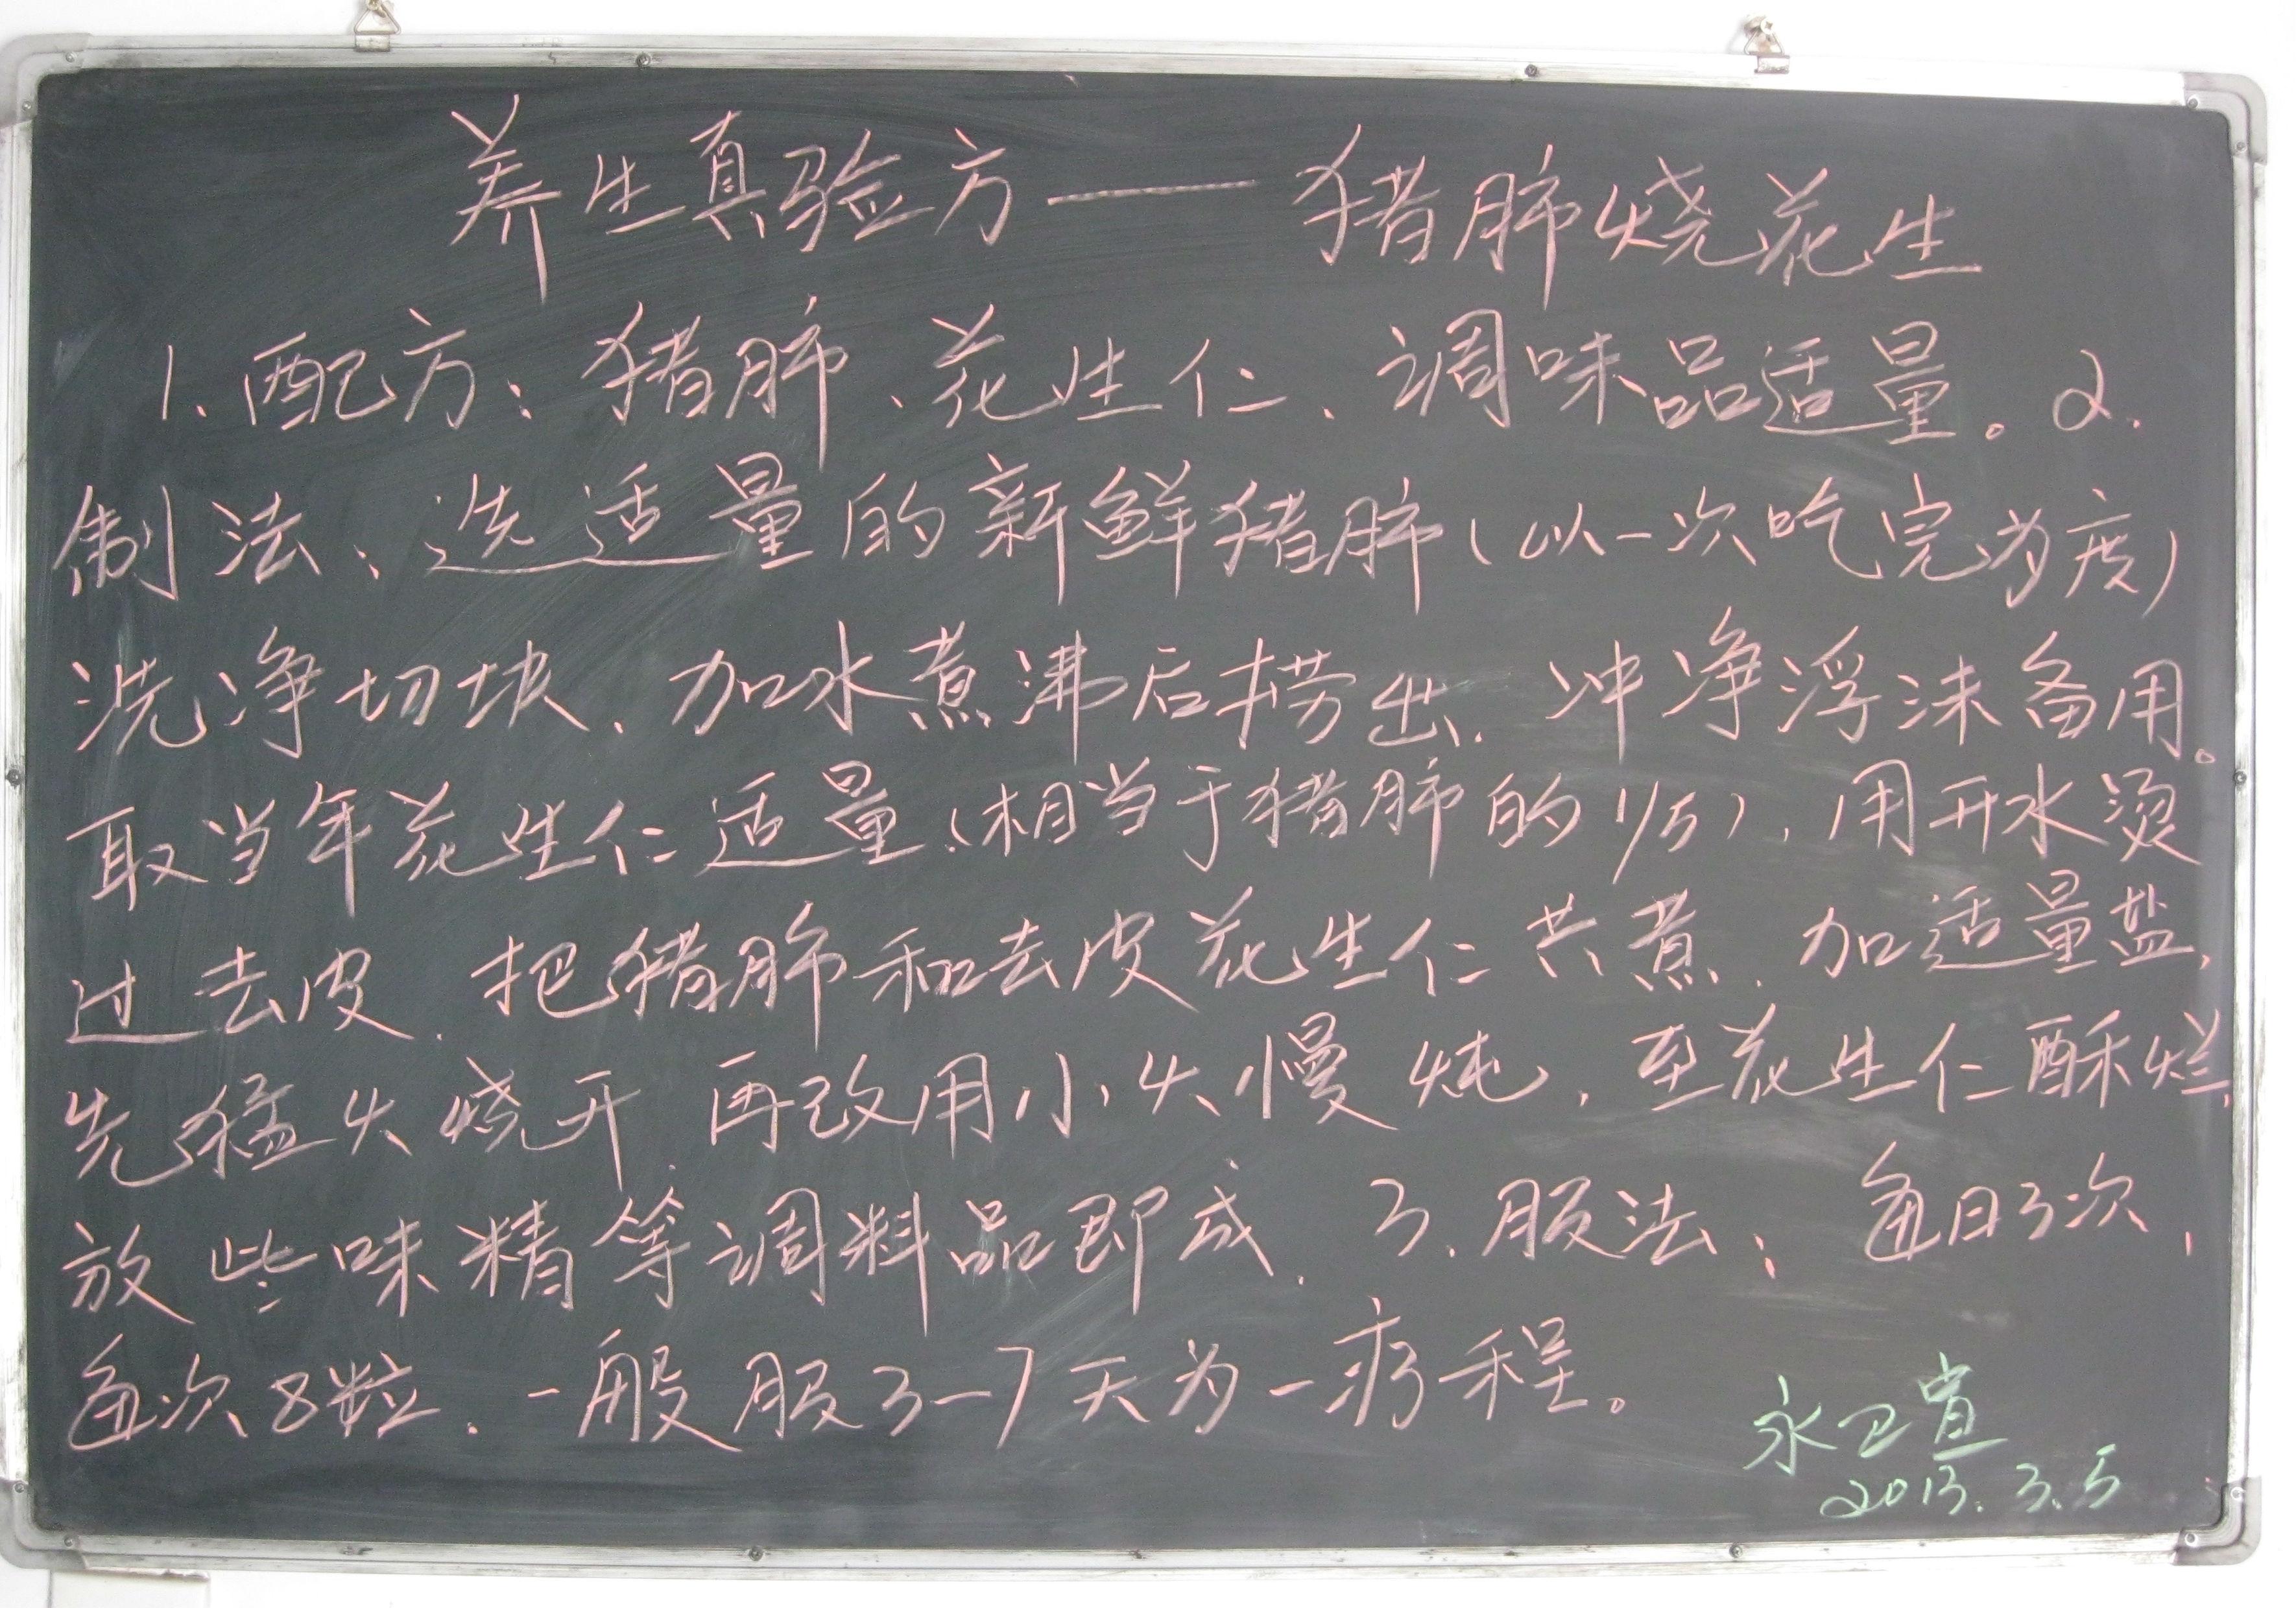 养生真验方——猪肺烧花生
1.配方：猪肺、花生仁、调味品适量。2.
制法：选适量的新鲜猪肺(以一次吃完为度)
洗净切块，加水煮沸后捞出，冲净浮沫备用。
取当年花生仁适量(相当于猪肺的1/5)，用开水烫
过去皮，把猪肺和去皮花生仁共煮，加适量盐，
先猛火烧开，再改用小火慢炖，至花生仁酥烂，
放些味精等调料品即成。3.服法：每日3次，
每次8粒，一般服3—7天为一疗程。
永卫宣
2013.3.5